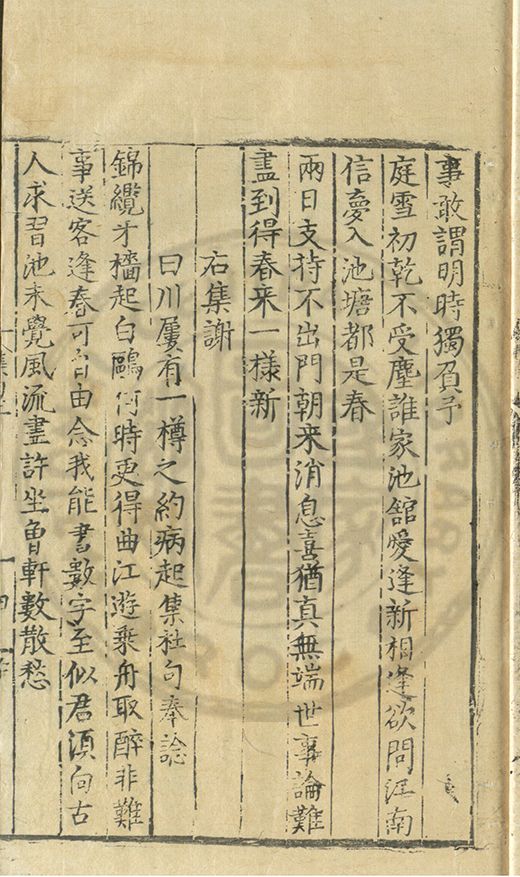 事敢謂明時獨負予
庭雪初乾不受塵誰家池舘愛逢新相逢欲問江南
信夢入池塘都是春
兩日支持不出門朝来消息喜猶真無端世事論難
盡到得春来一樣新
右集謝
曰川屢有一樽之約病起集社句奉諗
錦纜牙檣起白鷗何時更得曲江遊乘舟取醉非難
事送客逢春可自由念我能書數字至似君須向古
人求習池未覺風流盡許坐曾軒數散愁